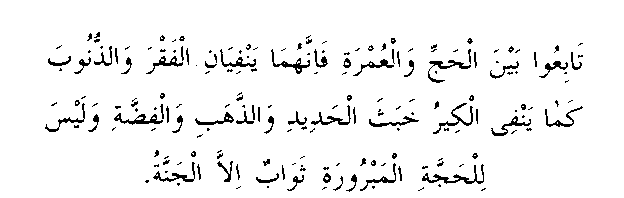 تَابِعُوا بَيْنَ الْحَجِّ وَالْعُمْرَةِ فَاِنَّهُمَا يَنْفِيَانِ الْفَقْرَ وَالذُّنُوبَ
كَمَا يَنْفِى الْكِيرُ خَبَثَ الْحَدِيدِ وَالذَّهَبِ وَالْفِضَّةِ وَلَيْسَ
لِلْحَجَّةِ الْمَبْرُورَةِ ثَوَابٌ اِلاَّ الْجَنَّةُ.